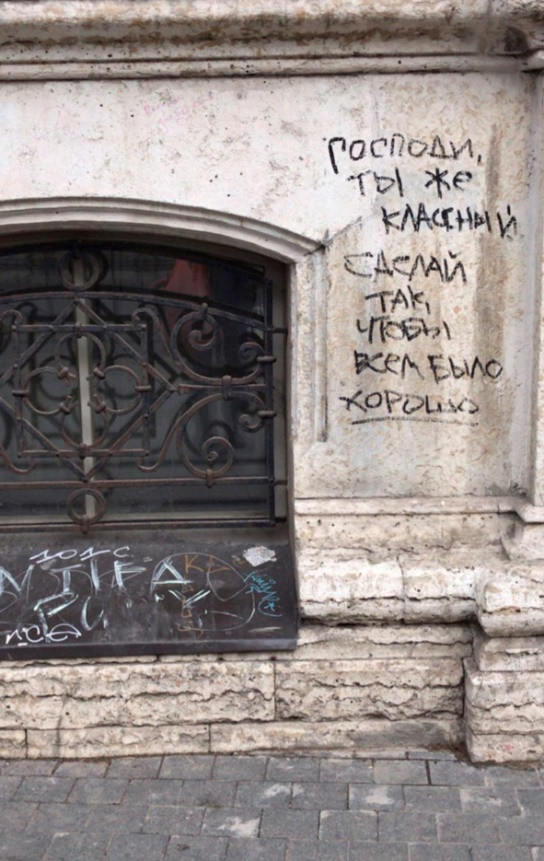 ГОСПОДИ,
ТЫ ЖЕ
КЛАССНЫЙ
СДЕЛАЙ
ТАК,
ЧТОБЫ
ВСЕМ БЫЛО
ХОРОШО